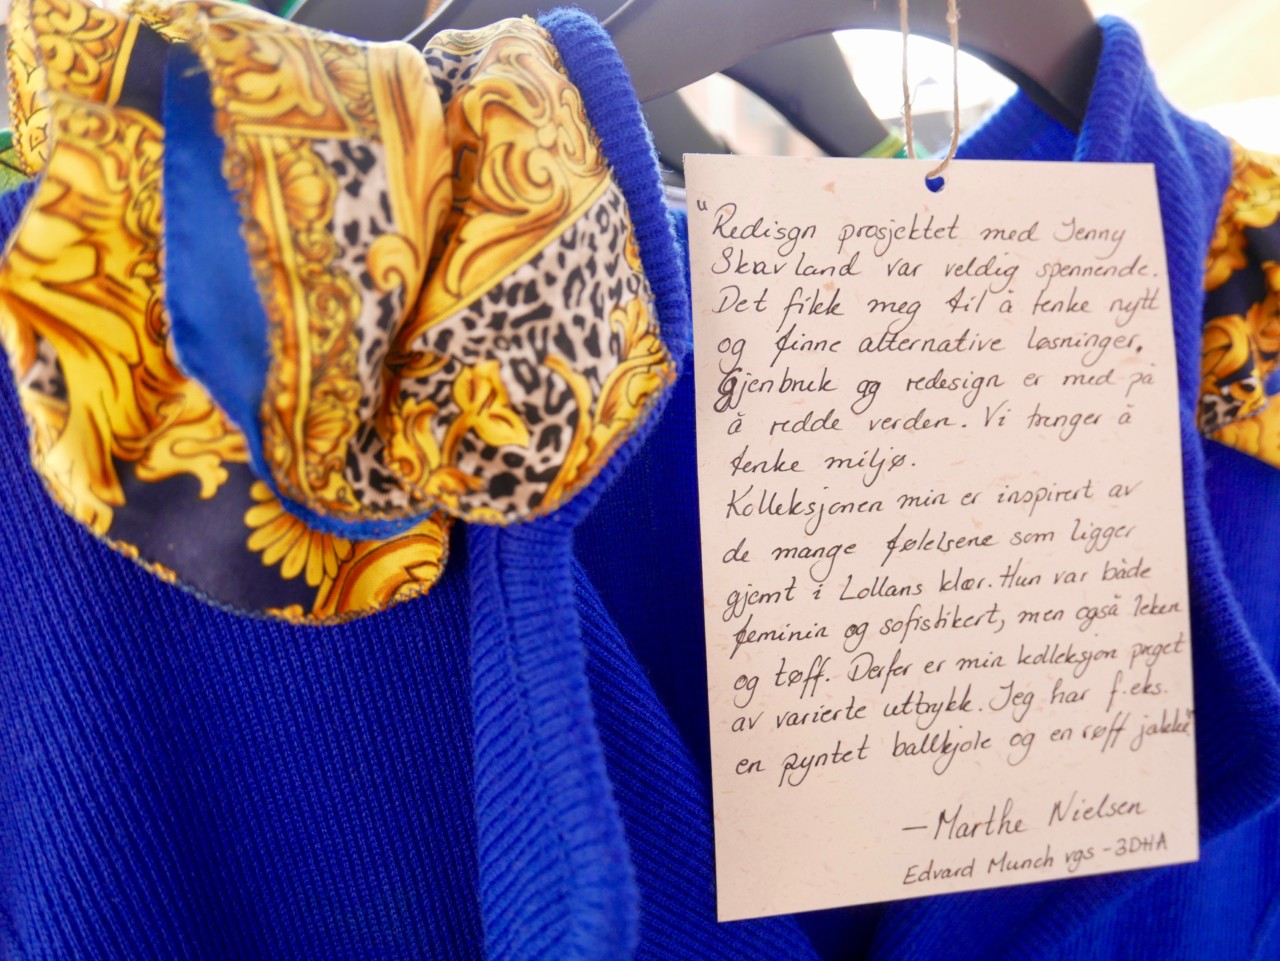 "Redisgn prosjektet med Jenny
Skavland var veldig spennende.
Det fikk meg til å tenke nytt
og finne alternative løsninger.
Gjenbruk og redesign er med på
å redde verden. Vi trenger å
tenke miljø.
Kolleksjonen min er inspirert av
de mange følelsene som ligger
gjemt i Lollans klær. Hun var både
feminin og sofistikert, men også leken
og tøff. Derfor er min kolleksjon preget
av varierte uttrykk. Jeg har f.eks.
en pyntet ballkjole og en røff jakke"
—Marthe Nielsen
Edvard Munch vgs -3DHA